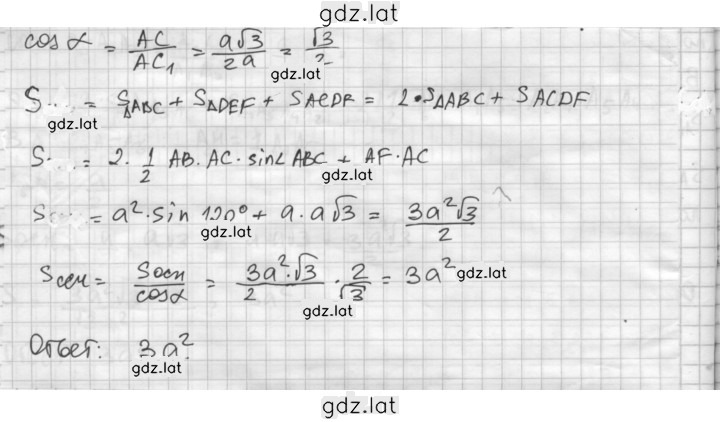 gdz.lat
cos α = AC/AC₁ = a√3/2a = √3/2
gdz.lat
S... = S△ABC + S△DEF + SACDF = 2·S△ABC + SACDF
gdz.lat
S... = 2·1/2 AB·AC·sin∠ABC + AF·AC
gdz.lat
S... = a²·sin 120° + a·a√3 = 3a²√3/2
gdz.lat
Sсеч = Sосн/cosα = 3a²·√3/2 · 2/√3 = 3a²
gdz.lat
gdz.lat
Ответ: 3a².
gdz.lat
gdz.lat